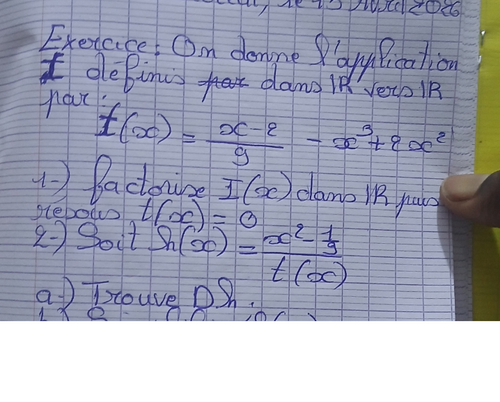 Exercice: On donne l'application
I définis par dans IR vers IR
par:
I(x) = x-2/9 - x³+2x²
1-) factorise I(x) dans IR puis
résous t(x) = 0
2-) Soit Sh(x) = x² - 1/9 / t(x)
a-) Trouve DSh.